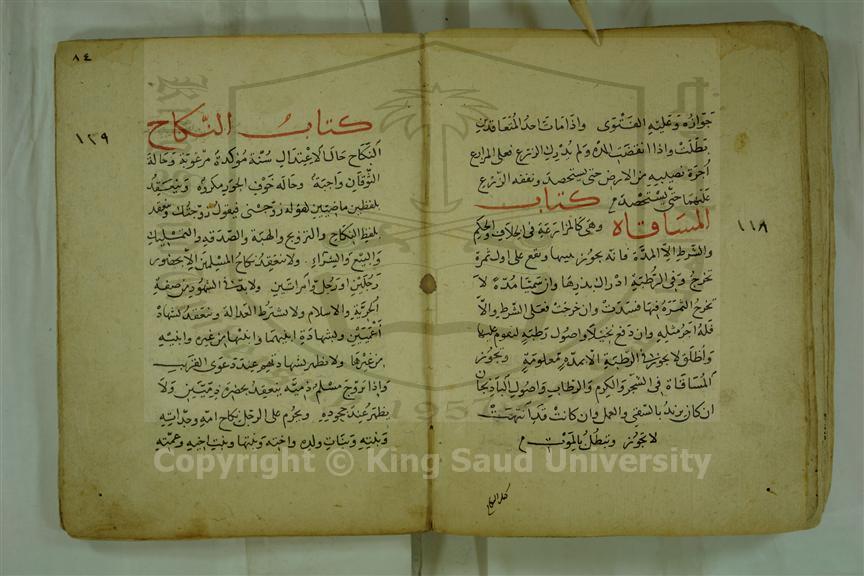 ١١٨
جوازه وعليه الفتوى واذا مات احد المتعاقدين
بطلت واذا انقضت المدة ولم يدرك الزرع فعلى المزارع
اجرة نصيبه من الارض حتى يستحصد ونفقة الزرع
عليهما حتى يستحصد م كتاب
المساقاة وهي كالمزارعة في الخلاف والحكم
والشرط الا المدة فانه يجوز بينها ويقع على اول ثمرة
تخرج وفي الرطبة ادراك بذرها وان سميا مدة لا
تخرج الثمرة فيها فسدت وان خرجت فعلى الشرط والا
فله اجر مثله وان دفع نخيلا واصول رطبة ليقوم عليها
واطلق لا يجوز في الرطبة الا بمدة معلومة ويجوز
المساقاة في الشجر والكرم والرطاب واصول الباذنجان
ان كان يزيد بالسقي والعمل وان كانت قد انتهت
لا يجوز وتبطل بالموت م
كتاب النكاح
٨٤
١١٩
كتاب النكاح
النكاح حالة الاعتدال سنة مؤكدة مرغوبة وحالة
التوقان واجبة وحالة خوف الجور مكروه وينعقد
بلفظين ماضيين كقوله زوجني فيقول زوجتك وينعقد
بلفظ النكاح والتزويج والهبة والصدقة والتمليك
والبيع والشراء ولا ينعقد نكاح المسلمين الا بحضور
رجلين او رجل وامراتين ولا بد في الشهود من صفة
الحرية والاسلام ولا يشترط العدالة وينعقد بشهادة
اعميين وبشهادة ابنيهما وابنيها من غيره وابنيه
من غيرها ولا تظهر بشهادتهم عند دعوى القريب
واذا تزوج مسلم ذمية ينعقد بحضرة ذميين ولا
يظهر عند جحوده ويحرم على الرجل نكاح امه وجداته
وبنته وبنات ولده واخته وبنتها وبنت اخيه وعمته
Copyright © King Saud University
1957